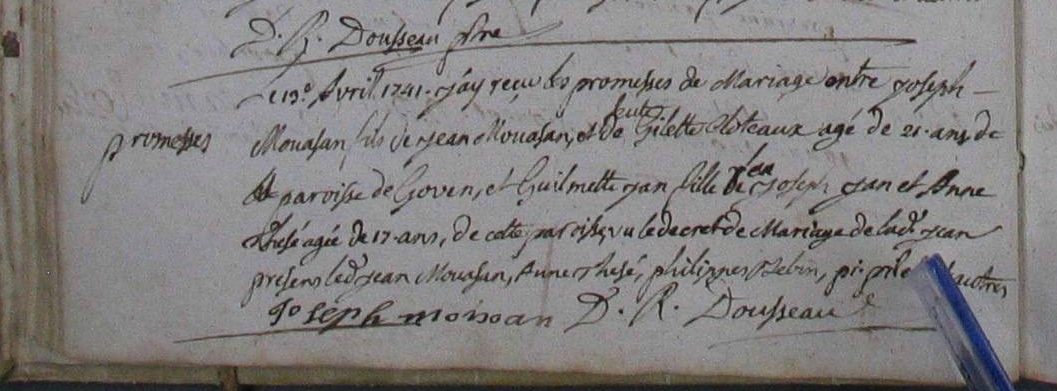 D. R. Dousseau ptre
Le 13e Avril 1741. J'ay reçu les promesses de Mariage entre Joseph
promesses
Mouasan fils de Jean Mouasan, et de feute Gilette Cloteaux agé de 21. ans de
la paroisse de Goven, et Guilmette Jan fille de feu Joseph Jan et Anne
Thesé agée de 17. ans, de cette paroisse, vu le decret de Mariage de lad. Jan
presens led. Jean Mouasan, Anne Thesé, philippes autres
Joseph moisan D. R. Dousseau